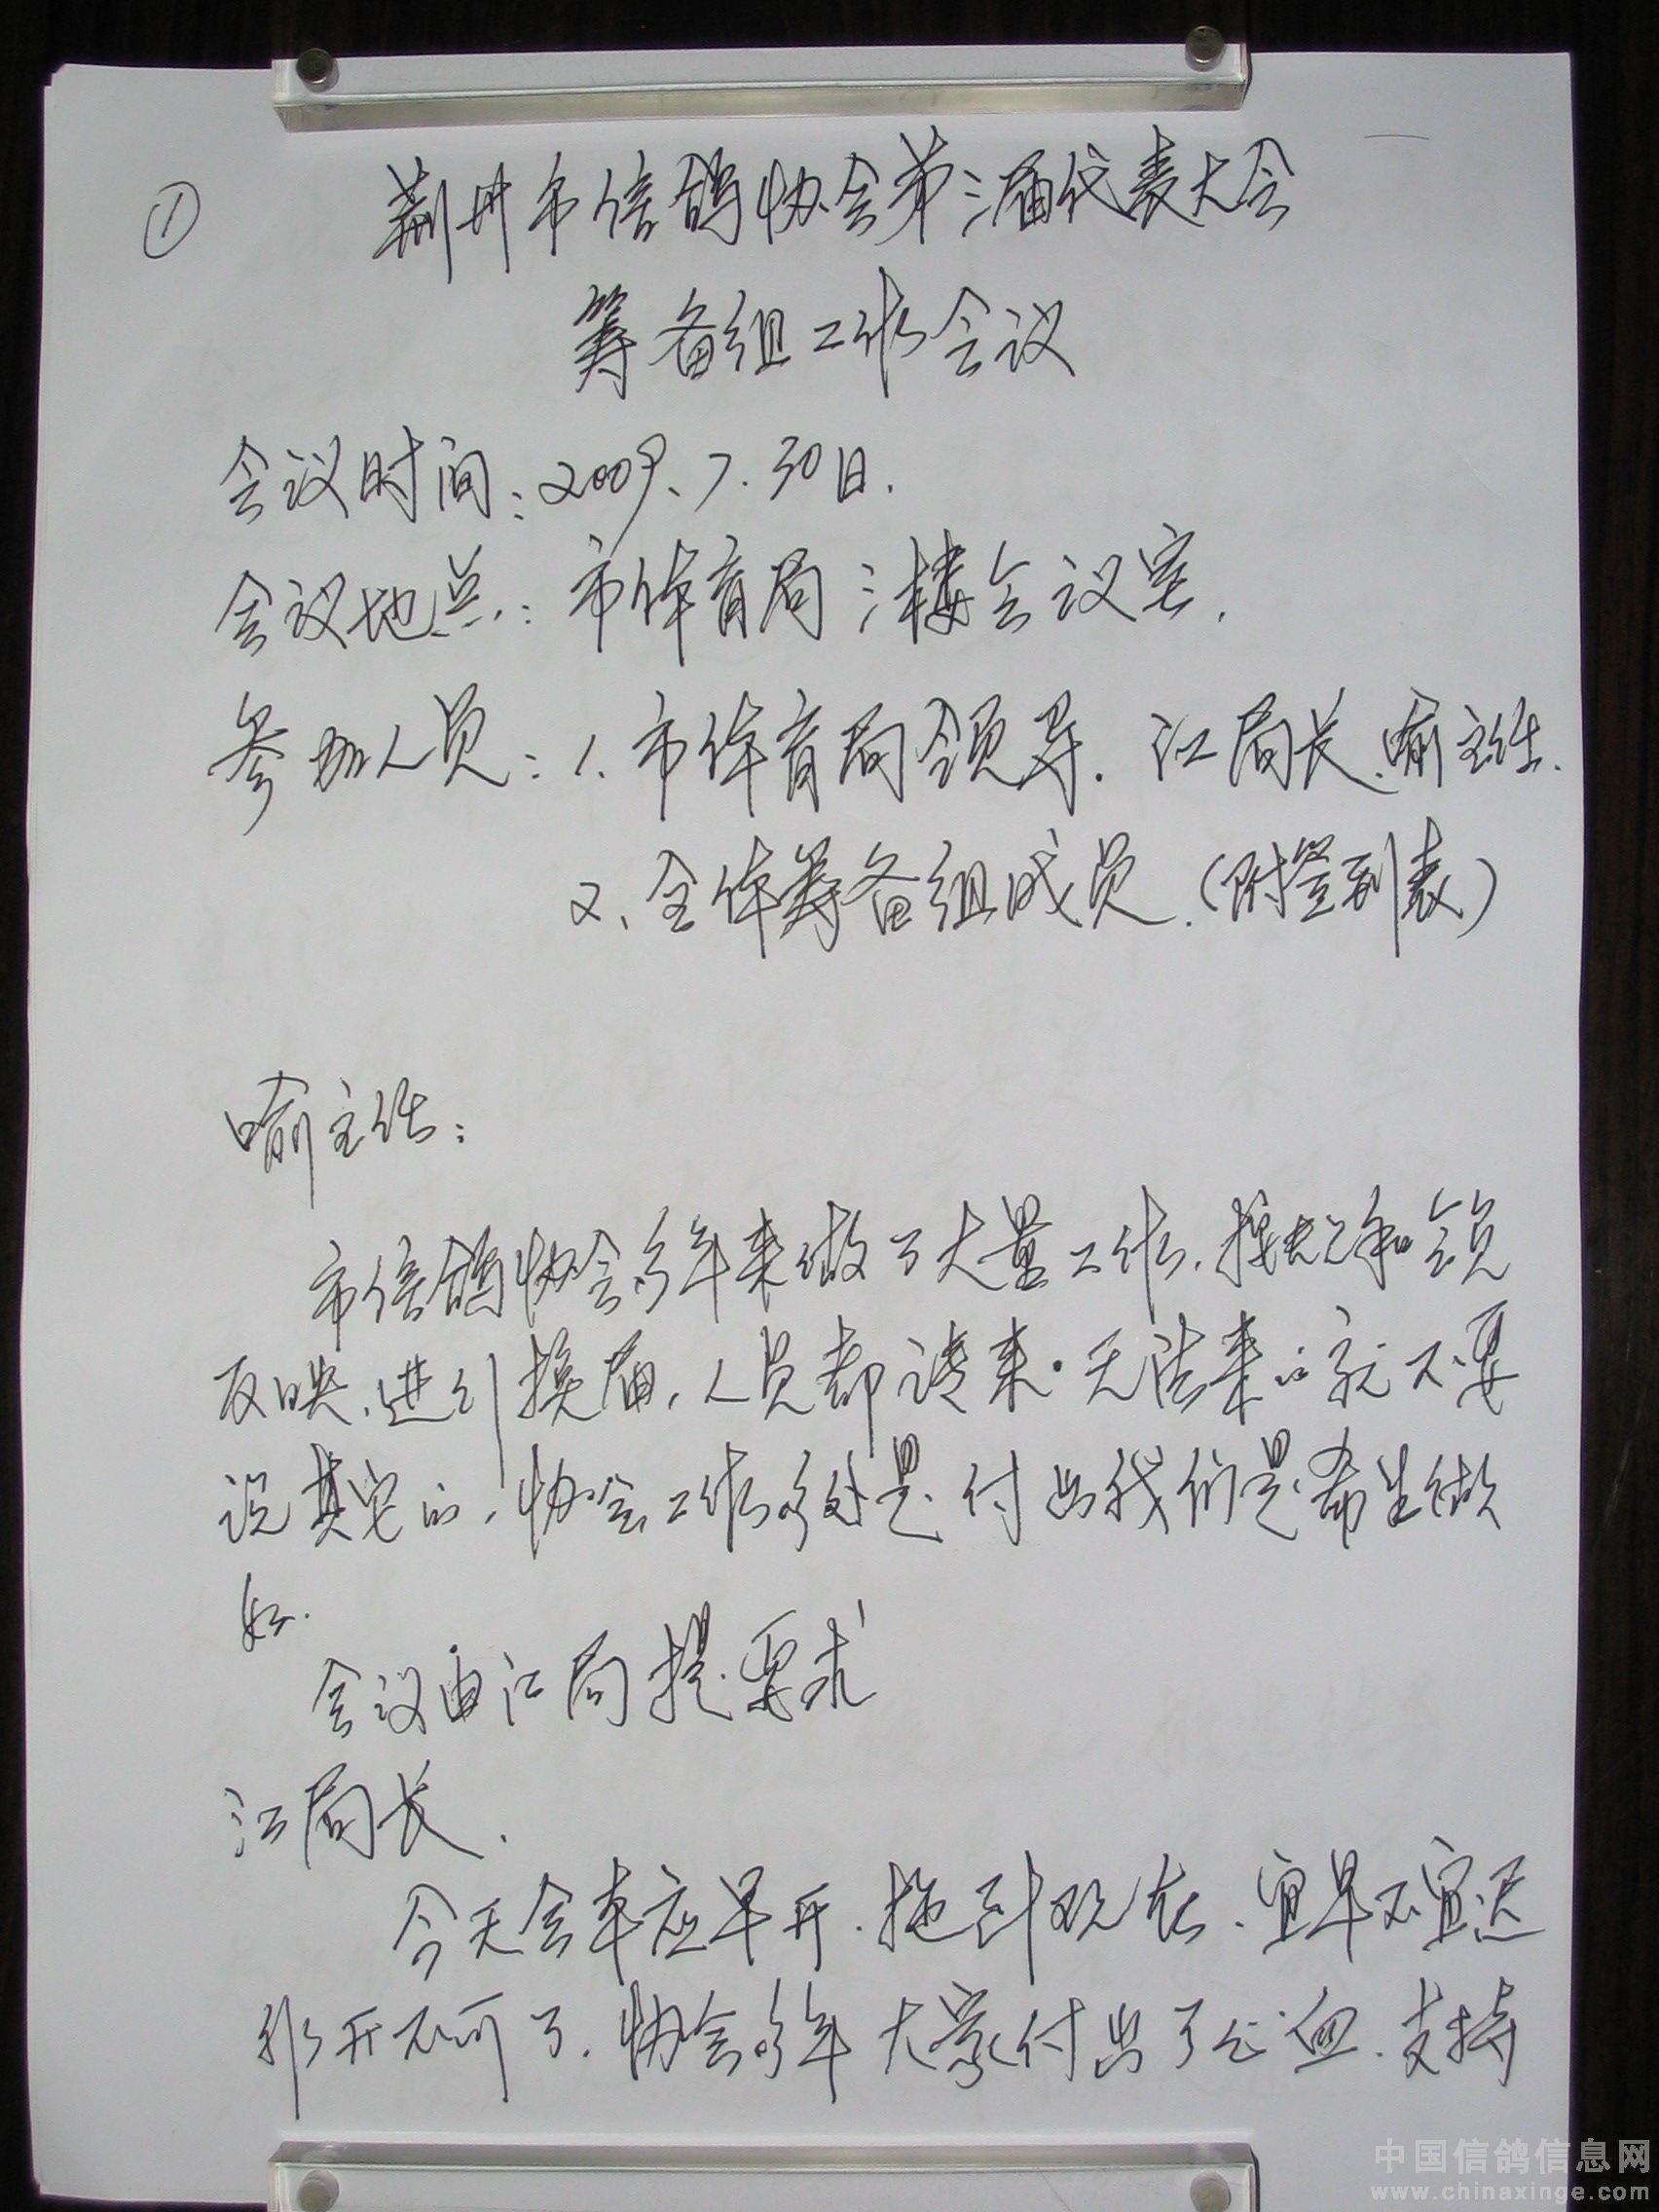 ①
荆州市信鸽协会第三届代表大会
筹备组工作会议
会议时间：2009、7.30日.
会议地点：市体育局三楼会议室.
参加人员：1.市体育局领导.江局长、喻主任.
2、全体筹备组成员.(附签到表)
喻主任：
市信鸽协会多年来做了大量工作.
反映.进行换届,人员都请来.无法来的就不要
说其它的,协会工作多处是付出我们是希望做
好.
会议由江局提要求
江局长.
今天会本应早开.拖到现在.宜早不宜迟
非开不可了.协会多年大家付出了心血.支持
中国信鸽信息网
www.chinaxinge.com